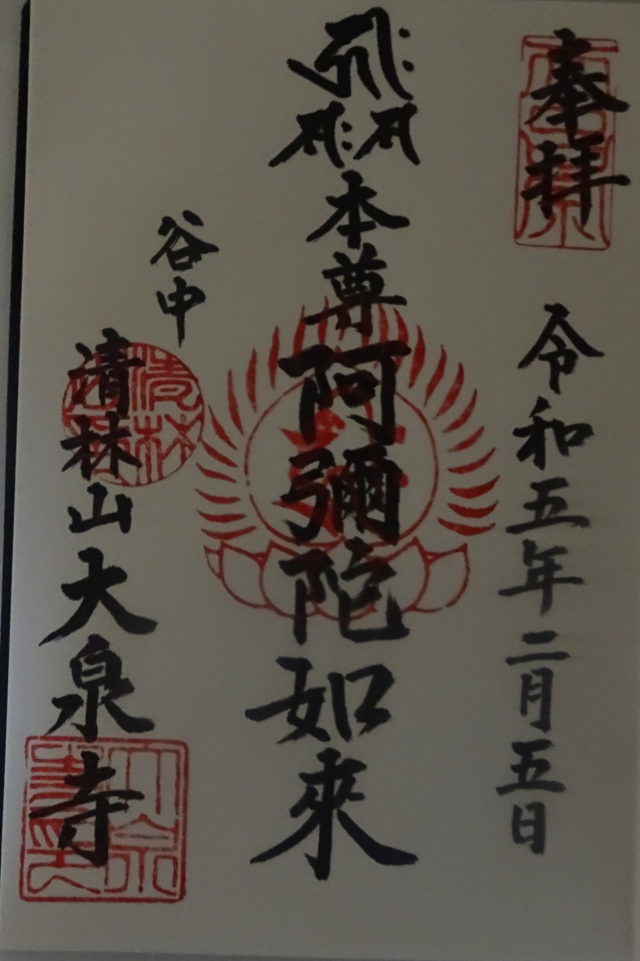 奉拝
令和五年二月五日
本尊阿彌陀如來
谷中
清林山大泉寺